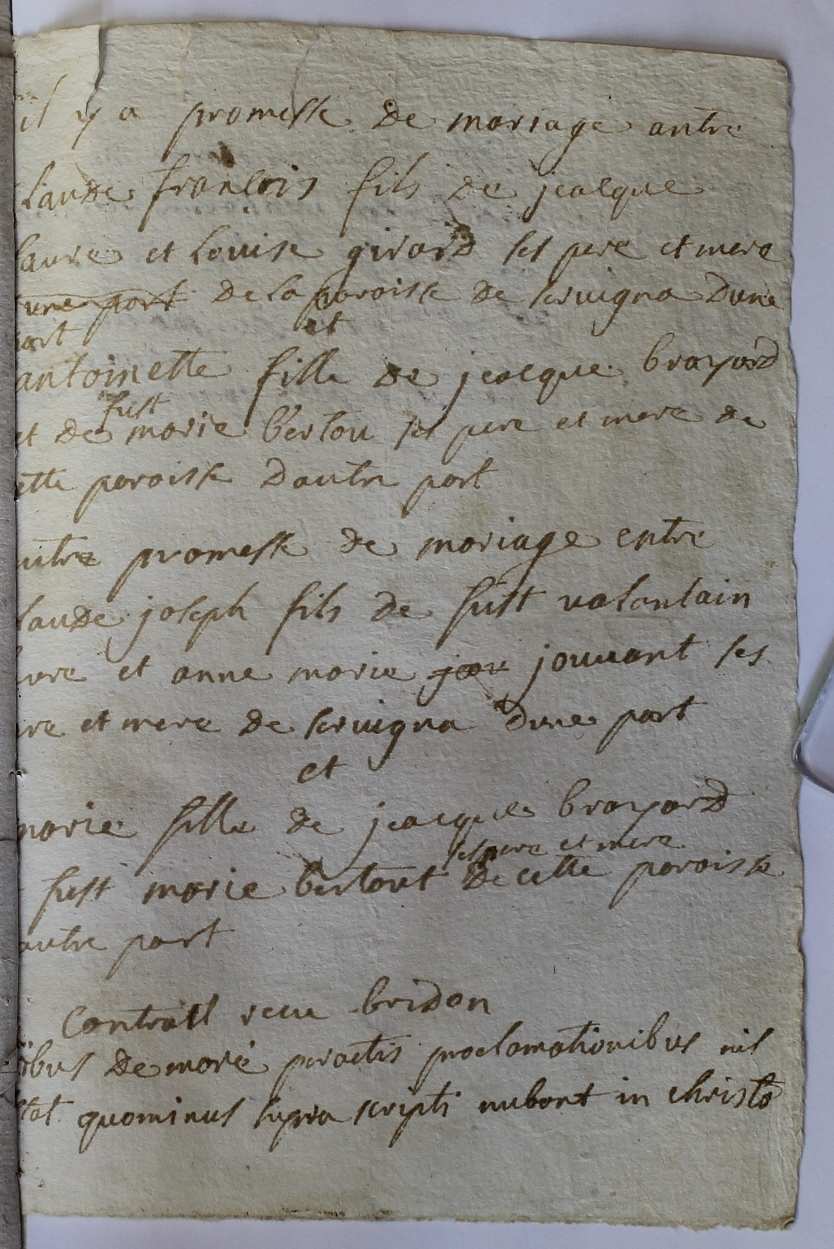 il y a promesse de mariage antre
laude francois fils de jacque
laure et louise girard ses pere et mere
une part de la paroisse de servigna dune
part
et
antoinette fille de jacque brayard
fust
et de marie bertou ses pere et mere de
ette paroisse dautre part
utre promesse de mariage entre
laude joseph fils de fust valantain
et anne marie jou jouvant ses
re et mere de servigna dune part
et
marie fille de jacque brayard
ses pere et mere
fust marie bertout de cette paroisse
autre part
Contract receu bridon
ibus de more peractis proclamationibus nil
tat quominus supra scripti nubant in christo